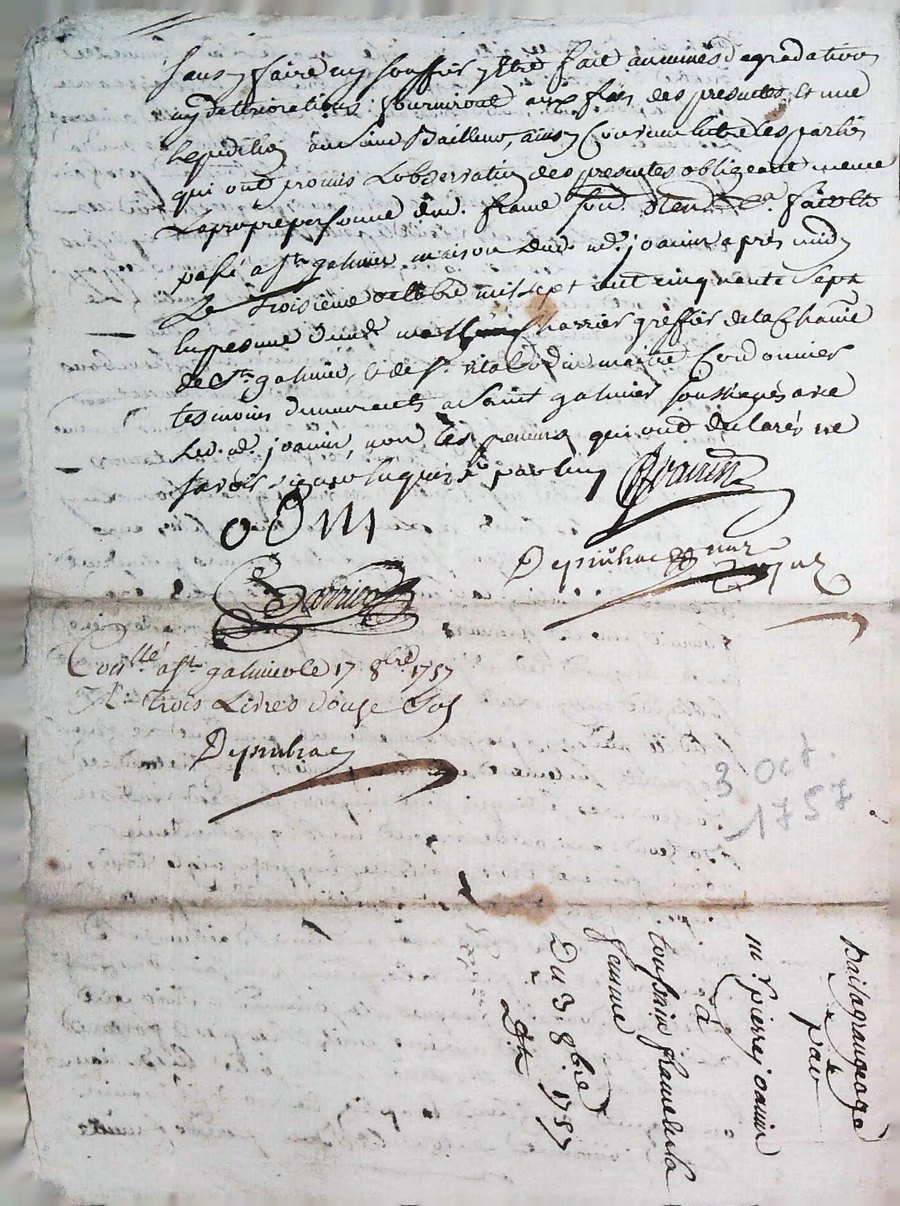 sans y faire ny souffrir y Etre fait aucunes degradations
ny deteriorations; fourniront aux frais des presentes Et une
Expedition audit sieur Bailleur, ainsy Convenu Entre les parties
qui ont promis L'observation des presentes obligeant meme
La propre personne dud. frame
passé a St galmier maison dud. sr. joanin apres midy
Le troisieme octobre mil sept cent cinquante Sept
En presence de Charrier greffier de la
de St galmier, & de sr. Cordonnier
temoins demeurants a Saint galmier soussignés avec
Led. sr. joanin, non les preneurs qui ont declarés ne
savoir signer de ce enquis
Joanin
ODIN
Depinhac nore Royal
Charrier
Conllé a St galmier le 17 8bre 1757
R. trois Livres douze Sols
Depinhac
3 Oct.
1757
Bail a grangeage
par
mr. pierre joanin
à
toussaint frame & sa
femme
Du 3. 8bre 1757